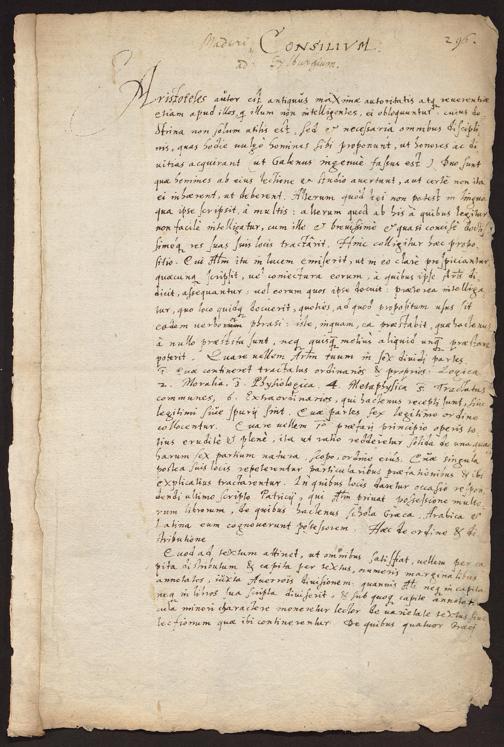 296.
Maderi CONSILIVM.
ad Sylburgium.
Aristoteles autor est antiquus maximæ autoritatis atq reuerentiæ
etiam apud illos, q illum non intelligentes, ei obloquuntur. cuius do
ctrina non solum utilis est, sed & necessaria omnibus discipli
nis, quas hodie uulgo homines sibi proponunt, ut honores ac di
uitias acquirant ut Galenus ingenue fassus est) Duo sunt
quæ homines ab eius lectione ac studio auertunt, aut certe non ita
ei inhærent, ut deberent. Alterum quod legi non potest in lingua
qua ipse scripsit, à multis: alterum quod ab his à quibus legitur
non facile intelligatur, cum ille & breuissime & quasi concise doctis
simeq res suas suis locis tractarit. Hinc colligitur hæc propo
sitio. Qui Atlm ita in lucem emiserit, ut in eo clare perspiciantur
quæcunq scripsit, uel coniectura eorum, à quibus ipse Artē di
dicit, assequantur: uel eorum quos ipse docuit: præterea intelliga
tur, quo loco quidq docuerit, quoties, ad quod propositum usus sit
eadem uerborum phrasi: iste, inquam, ea præstabit, quæ hactenus
à nullo præstita sunt, neq quisq melius aliquid unq præstare
poterit. Quare uellem Artm tuum in sex diuidi partes
1. Quæ contineret tractatus ordinarios & proprios: Logica
2. Moralia. 3. Physiologica. 4. Metaphysica 5. Tractatus
communes, 6. Extraordinarios, qui hactenus recepti sunt, siue
legitimi siue spurij sint. Quæ partes sex legitimo ordine
collocentur. Quare uellem præfari principio operis to
tius erudite & plene, ita ut ratio redderetur solida de unaquaq
harum sex partium natura, scopo, ordine eius. Quæ singula
postea suis locis repeterentur particularibus præfationibus & ibi
explicatius tractarentur. In quibus locis daretur occasio respon
dendi ultimo scripto Patricij, qui Atlm priuat possessione multo
rum librorum, de quibus hactenus schola Græca, Arabica &
Latina eum cognouerunt possessorem. Hæc de ordine & di
stributione
Quod ad textum attinet, ut omnibus satisfiat, uellem per ca
pita distributum & capita per textus, numeris marginalibus
annotatos, iuxta Auerrois diuisionem: quamuis Atl neq in capita
neq in libros sua scripta diuiserit, & sub quoq capite annotat
cula minori charactere moneretur lector de uarietate textus siue
lectionum quæ ibi continerentur De quibus quatuor Græci